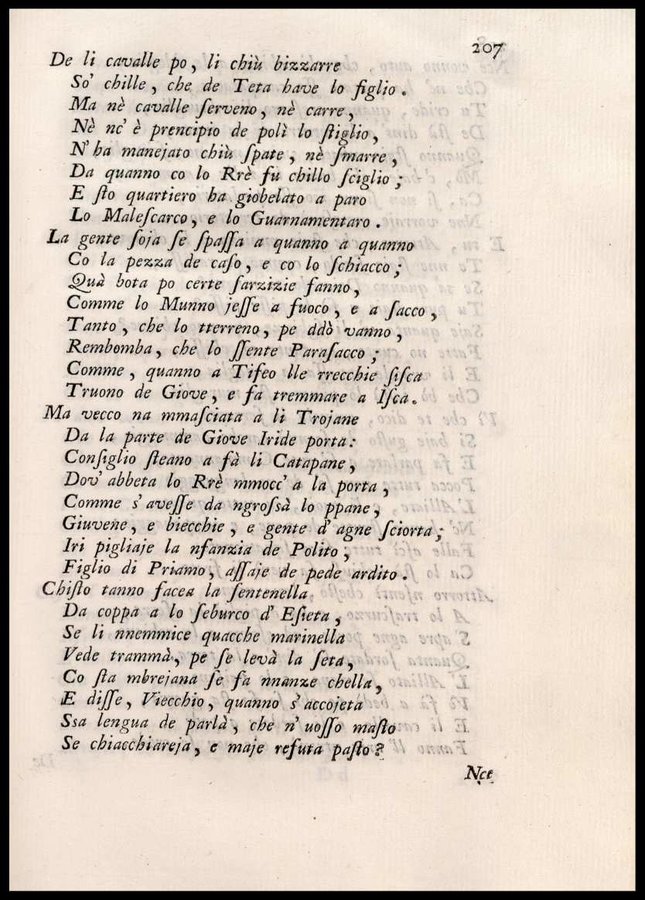 207
De li cavalle po, li chiù bizzarre
So' chille, che de Teta have lo figlio.
Ma nè cavalle ſerveno, nè carre,
Nè nc' è prencipio de polì lo ſtiglio,
N' ha manejato chiù ſpate, nè ſmarre,
Da quanno co lo Rrè fu chillo ſciglio;
E ſto quartiero ha giobelato a paro
Lo Maleſcarco, e lo Guarnamentaro.
La gente ſoja ſe ſpaſſa a quanno a quanno
Co la pezza de caſo, e co lo ſchiacco;
Quà bota po certe ſarzizie fanno,
Comme lo Munno jeſſe a fuoco, e a ſacco,
Tanto, che lo tterreno, pe ddò vanno,
Rembomba, che lo ſſente Paraſacco;
Comme, quanno a Tifeo lle rrecchie ſiſca
Truono de Giove, e fa tremmare a Iſca.
Ma vecco na mmaſciata a li Trojane
Da la parte de Giove Iride porta:
Conſiglio ſteano a fà li Catapane,
Dov' abbeta lo Rrè mmocc' a la porta,
Comme s' aveſſe da ngroſſà lo ppane,
Giuvene, e biecchie, e gente d' agne ſciorta;
Iri pigliaje la nfanzia de Polito,
Figlio di Priamo, aſſaje de pede ardito.
Chiſto tanno facea la ſentenella
Da coppa a lo ſeburco d' Eſieta,
Se li nnemmice quacche marinella
Vede trammà, pe ſe levà la ſeta,
Co ſta mbrejana ſe fa nnanze chella,
E diſſe, Viecchio, quanno s' accojeta
Ssa lengua de parlà, che n' uoſſo maſto
Se chiacchiareja, e maje reſuta paſto?
Nce